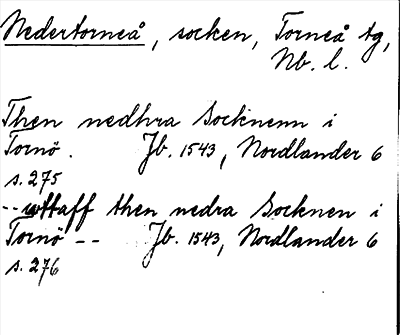 Nedertorneå, socken, Torneå tg,
Nb. l.
Then nedhra Socknenn i
Tornö. Jb. 1543, Nordlander 6
s. 275
-- wttaff then nedra Socknen i
Tornö -- Jb. 1543, Nordlander 6
s. 276